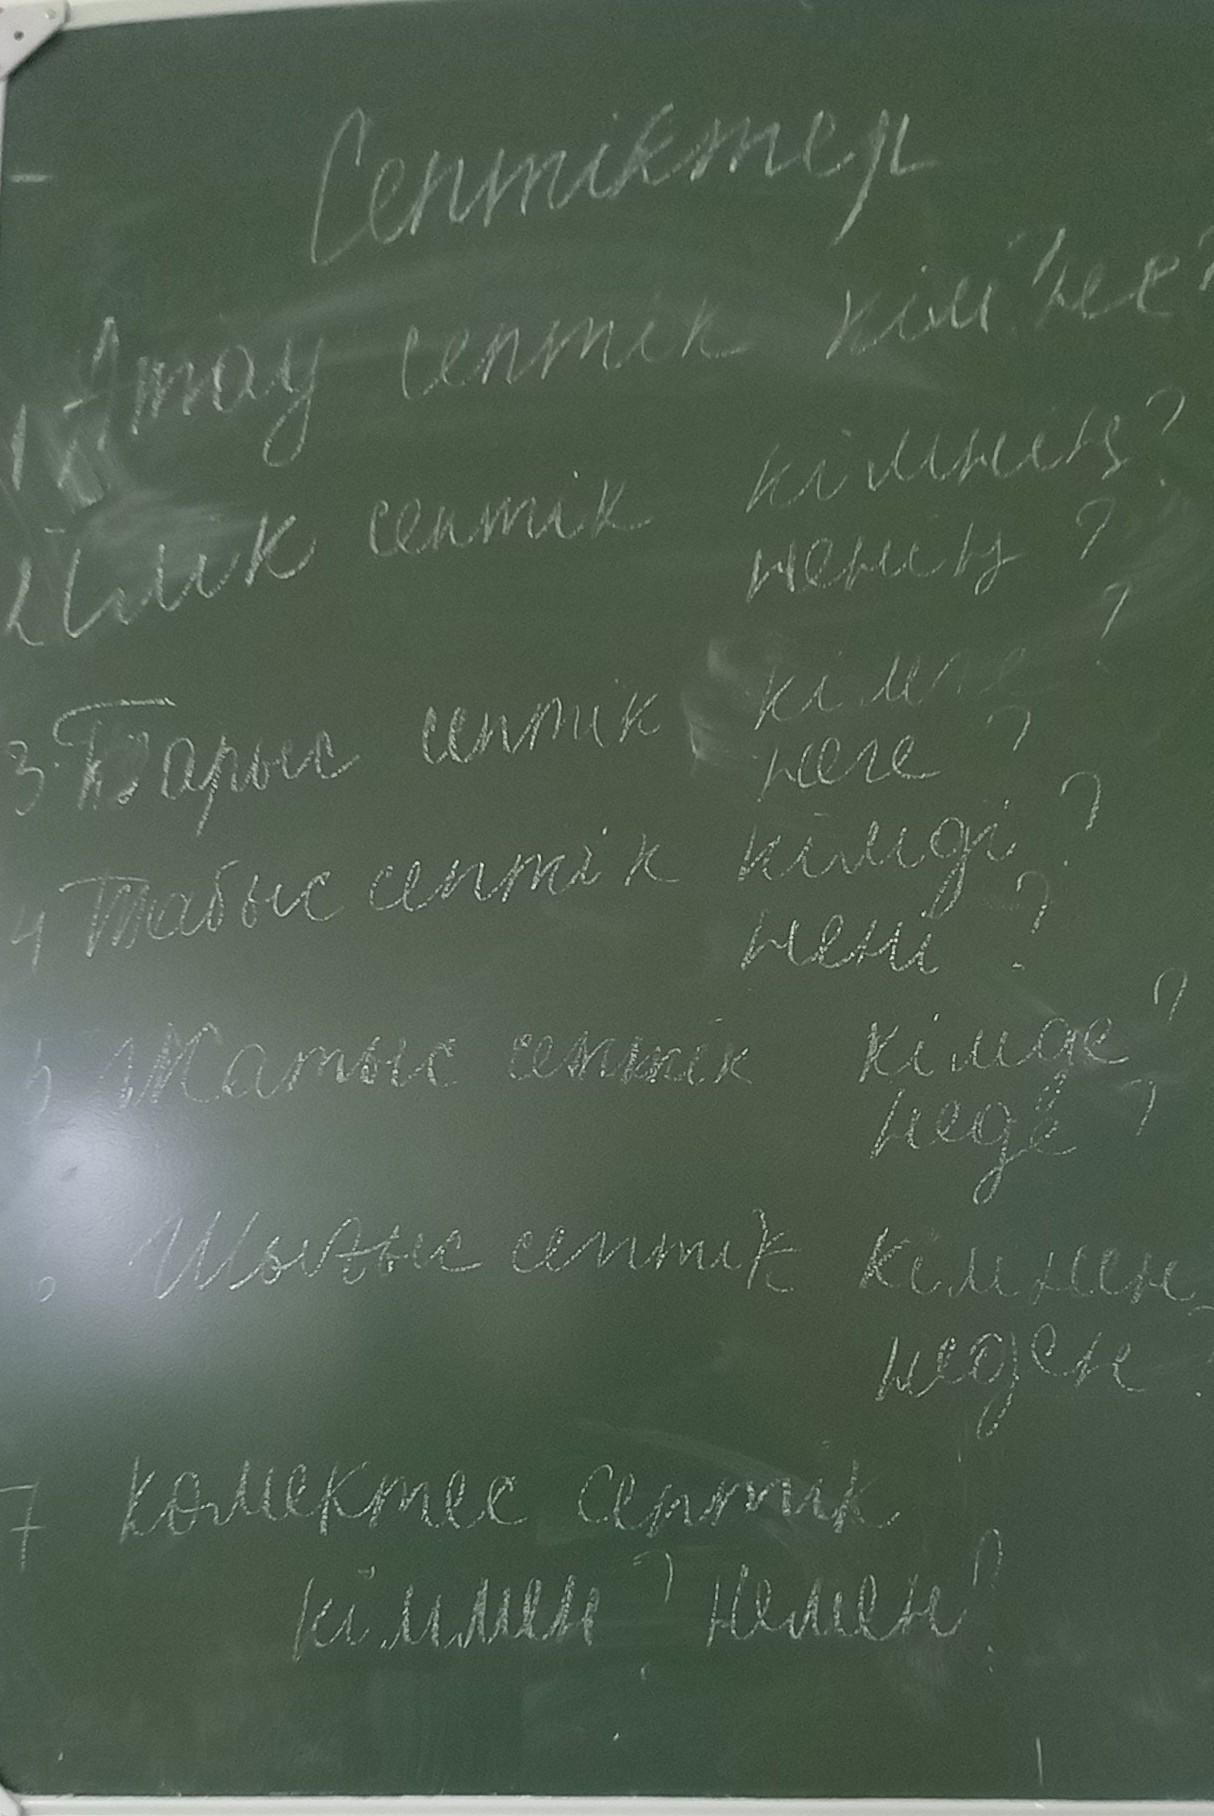 Септіктер
1 Атау септік кім? не?
2 Ілік септік кімнің?
ненің?
3. Барыс септік кімге?
неге?
4 Табыс септік кімді?
нені?
5 Жатыс септік кімде?
неде?
6 Шығыс септік кімнен
неден?
7 көмектес септік
кіммен? немен?